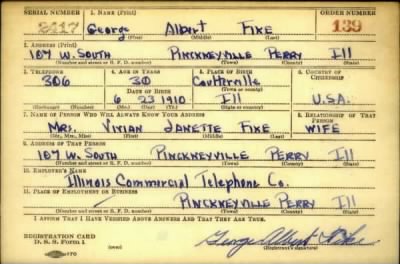 SERIAL NUMBER 1. NAME (Print) ORDER NUMBER
George Albert Fike 139
(First) (Middle) (Last)
2. ADDRESS (Print)
107 W. South Pinckneyville Perry Ill
(Number and street or R. F. D. number) (Town) (County) (State)
3. TELEPHONE 4. AGE IN YEARS 5. PLACE OF BIRTH 6. COUNTRY OF CITIZENSHIP
306 30 Coulterville
DATE OF BIRTH (Town or county)
6 23 1910 Ill U.S.A.
(Exchange) (Number) (Mo.) (Day) (Yr.) (State or country)
7. NAME OF PERSON WHO WILL ALWAYS KNOW YOUR ADDRESS 8. RELATIONSHIP OF THAT PERSON
Mrs. Vivian Janette Fike Wife
(Mr., Mrs., Miss) (First) (Middle) (Last)
9. ADDRESS OF THAT PERSON
107 W. South Pinckneyville Perry Ill
(Number and street or R. F. D. number) (Town) (County) (State)
10. EMPLOYER'S NAME
Illinois Commercial Telephone Co.
11. PLACE OF EMPLOYMENT OR BUSINESS
Pinckneyville Perry Ill
(Number and street or R. F. D. number) (Town) (County) (State)
I AFFIRM THAT I HAVE VERIFIED ABOVE ANSWERS AND THAT THEY ARE TRUE.
REGISTRATION CARD
D. S. S. Form 1 George Albert Fike
(Registrant's signature)